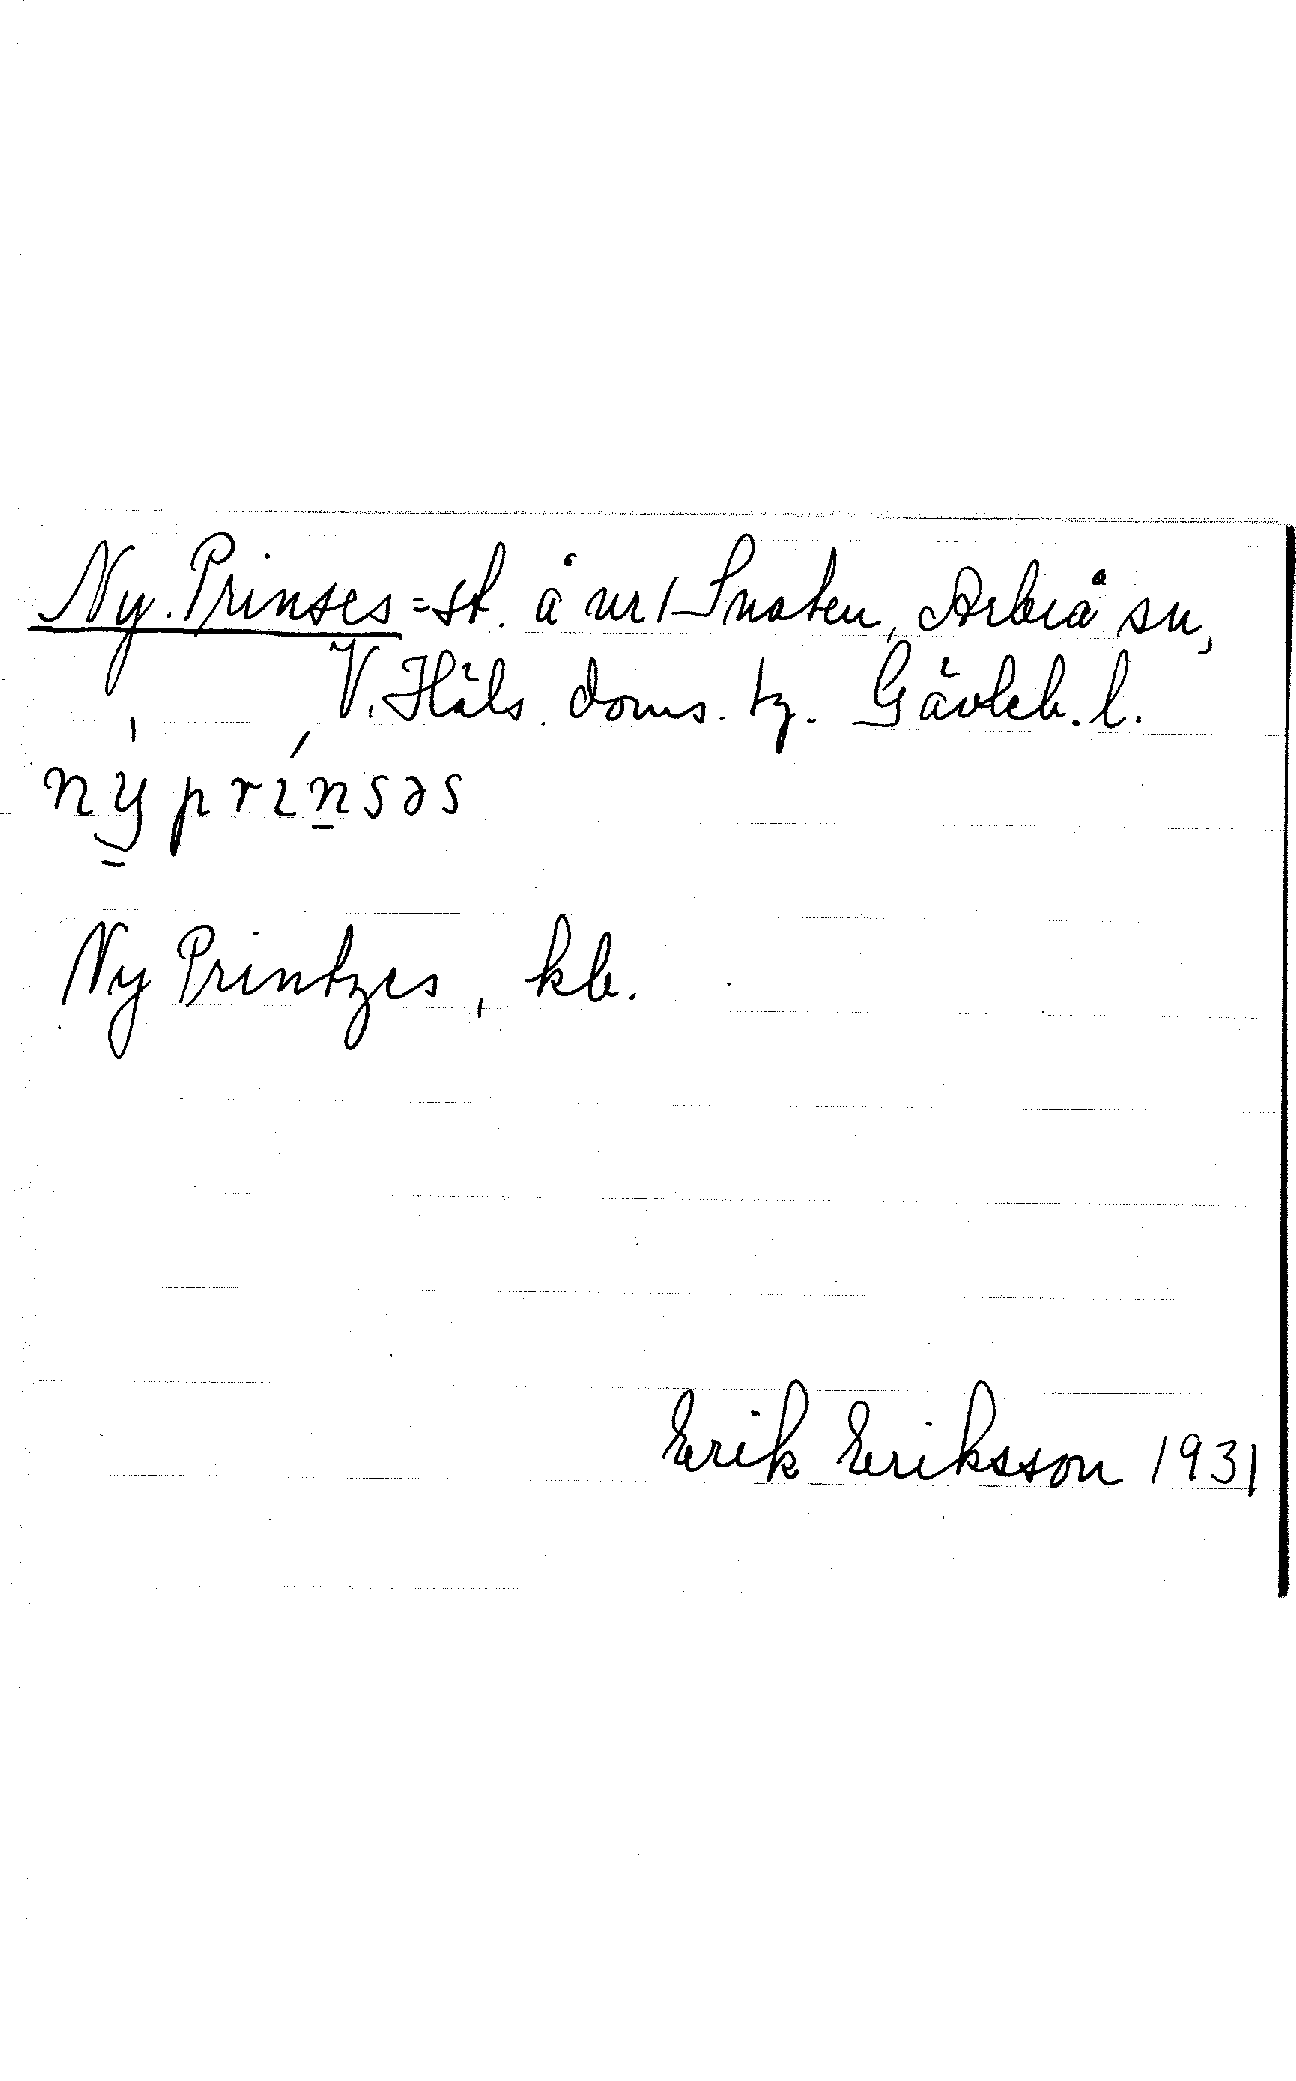 Ny-Prinses = st. å nr 1 Snaten, Arbrå sn,
V. Häls. doms. tg. Gävleb. l.
ný prínsəs
Ny Printzes, kb.
Erik Eriksson 1931